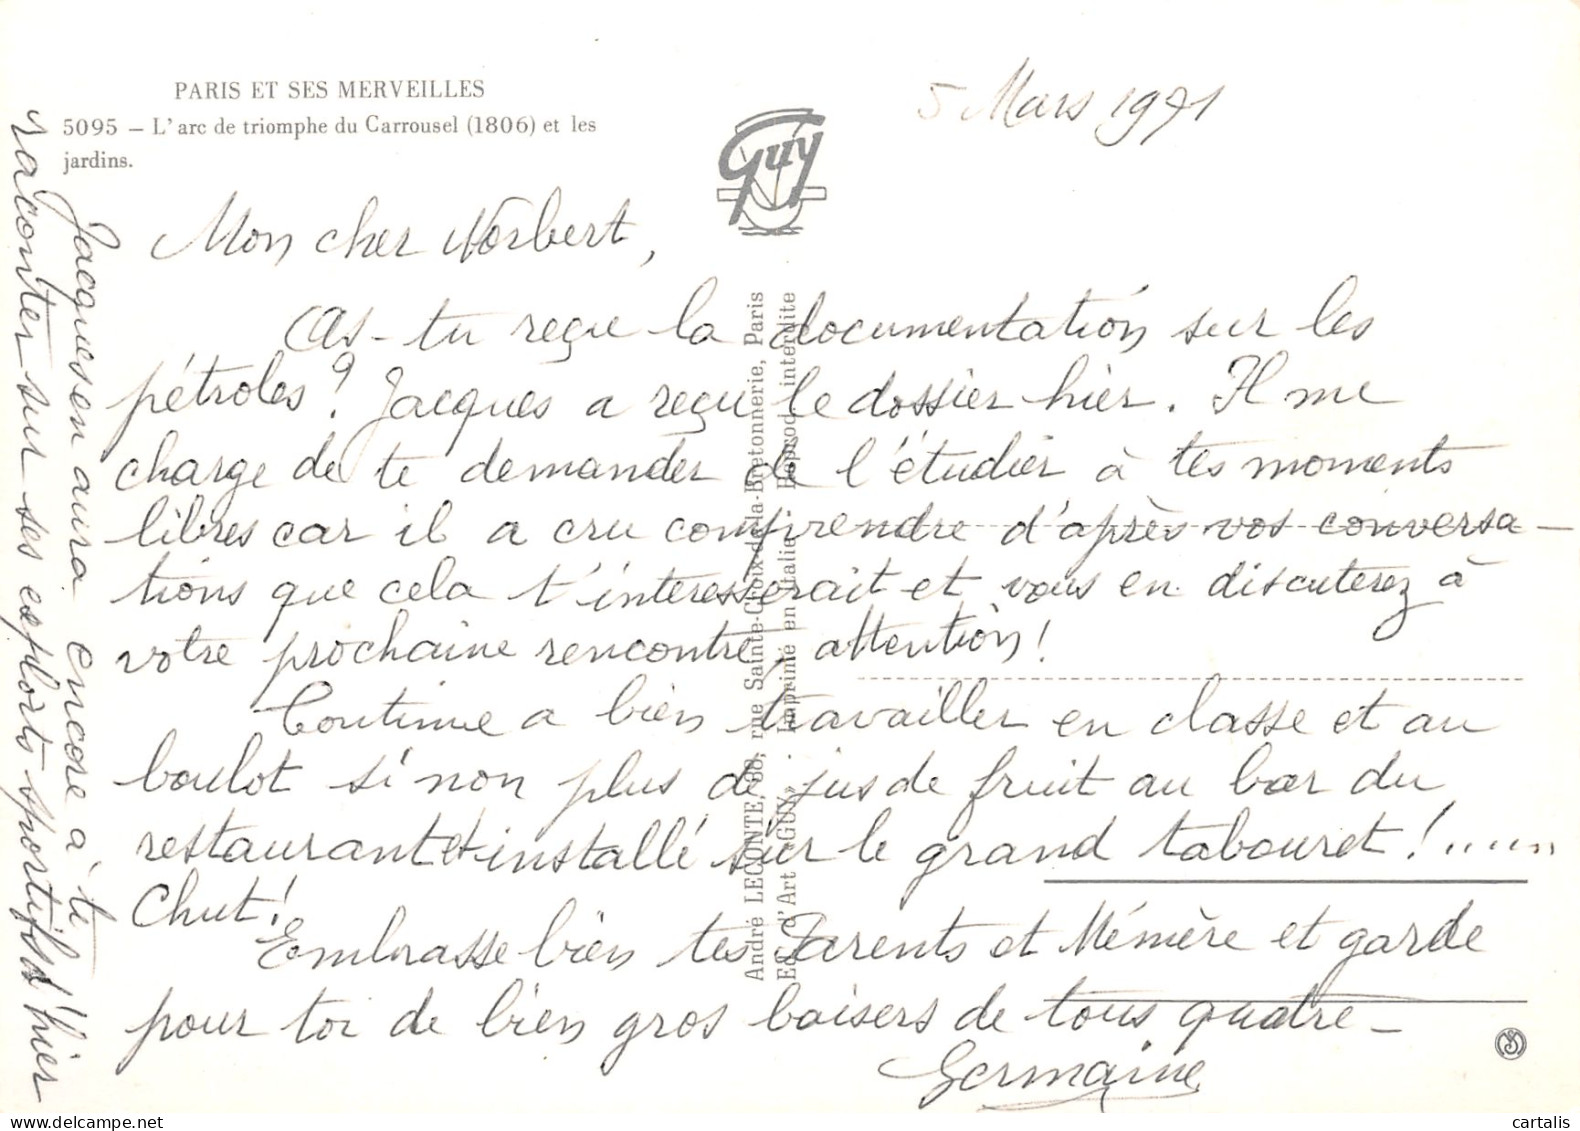 PARIS ET SES MERVEILLES
5095 – L'arc de triomphe du Carrousel (1806) et les
jardins.
Guy
5 Mars 1971
Mon cher Norbert,
As-tu reçue la documentation sur les
pétroles? Jacques a reçu le dossier hier. Il me
charge de te demander de l'étudier à tes moments
libres car il a cru comprendre d'après vos conversa-
tions que cela t'intéresserait et vous en discuterez à
votre prochaine rencontre, attention!
Continue a bien travailler en classe et au
boulot si non plus de jus de fruit au bar du
restaurant et installé sur le grand tabouret!......
Chut!
Embrasse bien tes Parents et Mémère et garde
pour toi de bien gros baisers de tous quatre-
Germaine
Jacques en aura encore à te
raconter sur ses exploits sportifs d'hier
André LECONTE, 38, rue Sainte-Croix-de-la-Bretonnerie, Paris
Ed. d'Art «GUY» - Imprimé en Italie - Reprod. interdite
cartalis